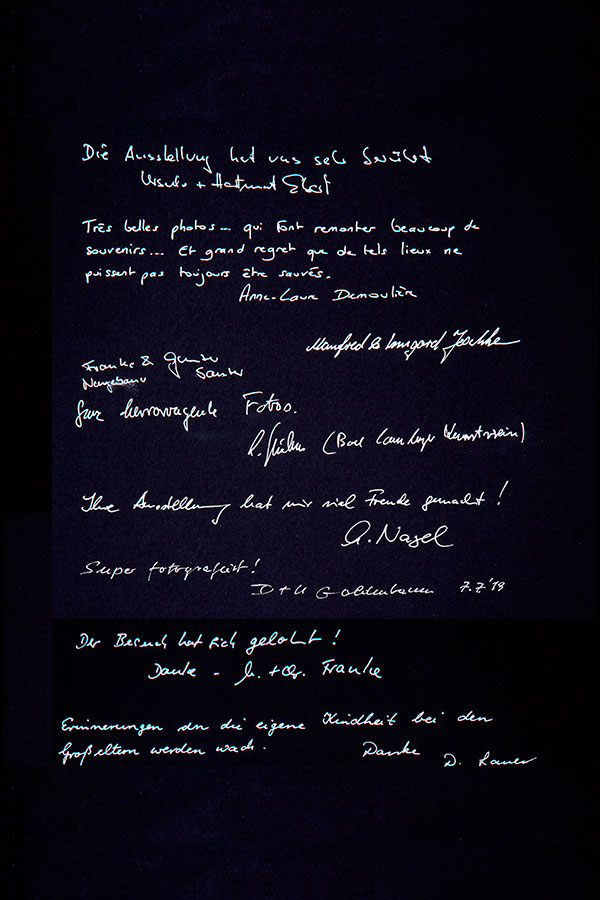 Die Ausstellung hat uns sehr berührt
Ursula + Hartmut
Très belles photos... qui font remonter beaucoup de
souvenirs... Et grand regret que de tels lieux ne
puissent pas toujours être sauvés.
Anne-Laure Demoulière
Manfred & Irmgard Jeschke
Frauke &
Ganz hervorragende Fotos.
Ihre Ausstellung hat mir viel Freude gemacht!
A. Nagel
Super fotografiert!
D + U Goldenbaum 7.7.'19
Der Besuch hat sich gelohnt!
Danke - Franke
Erinnerungen an die eigene Kindheit bei den
Großeltern werden wach.
Danke
D. Lauer